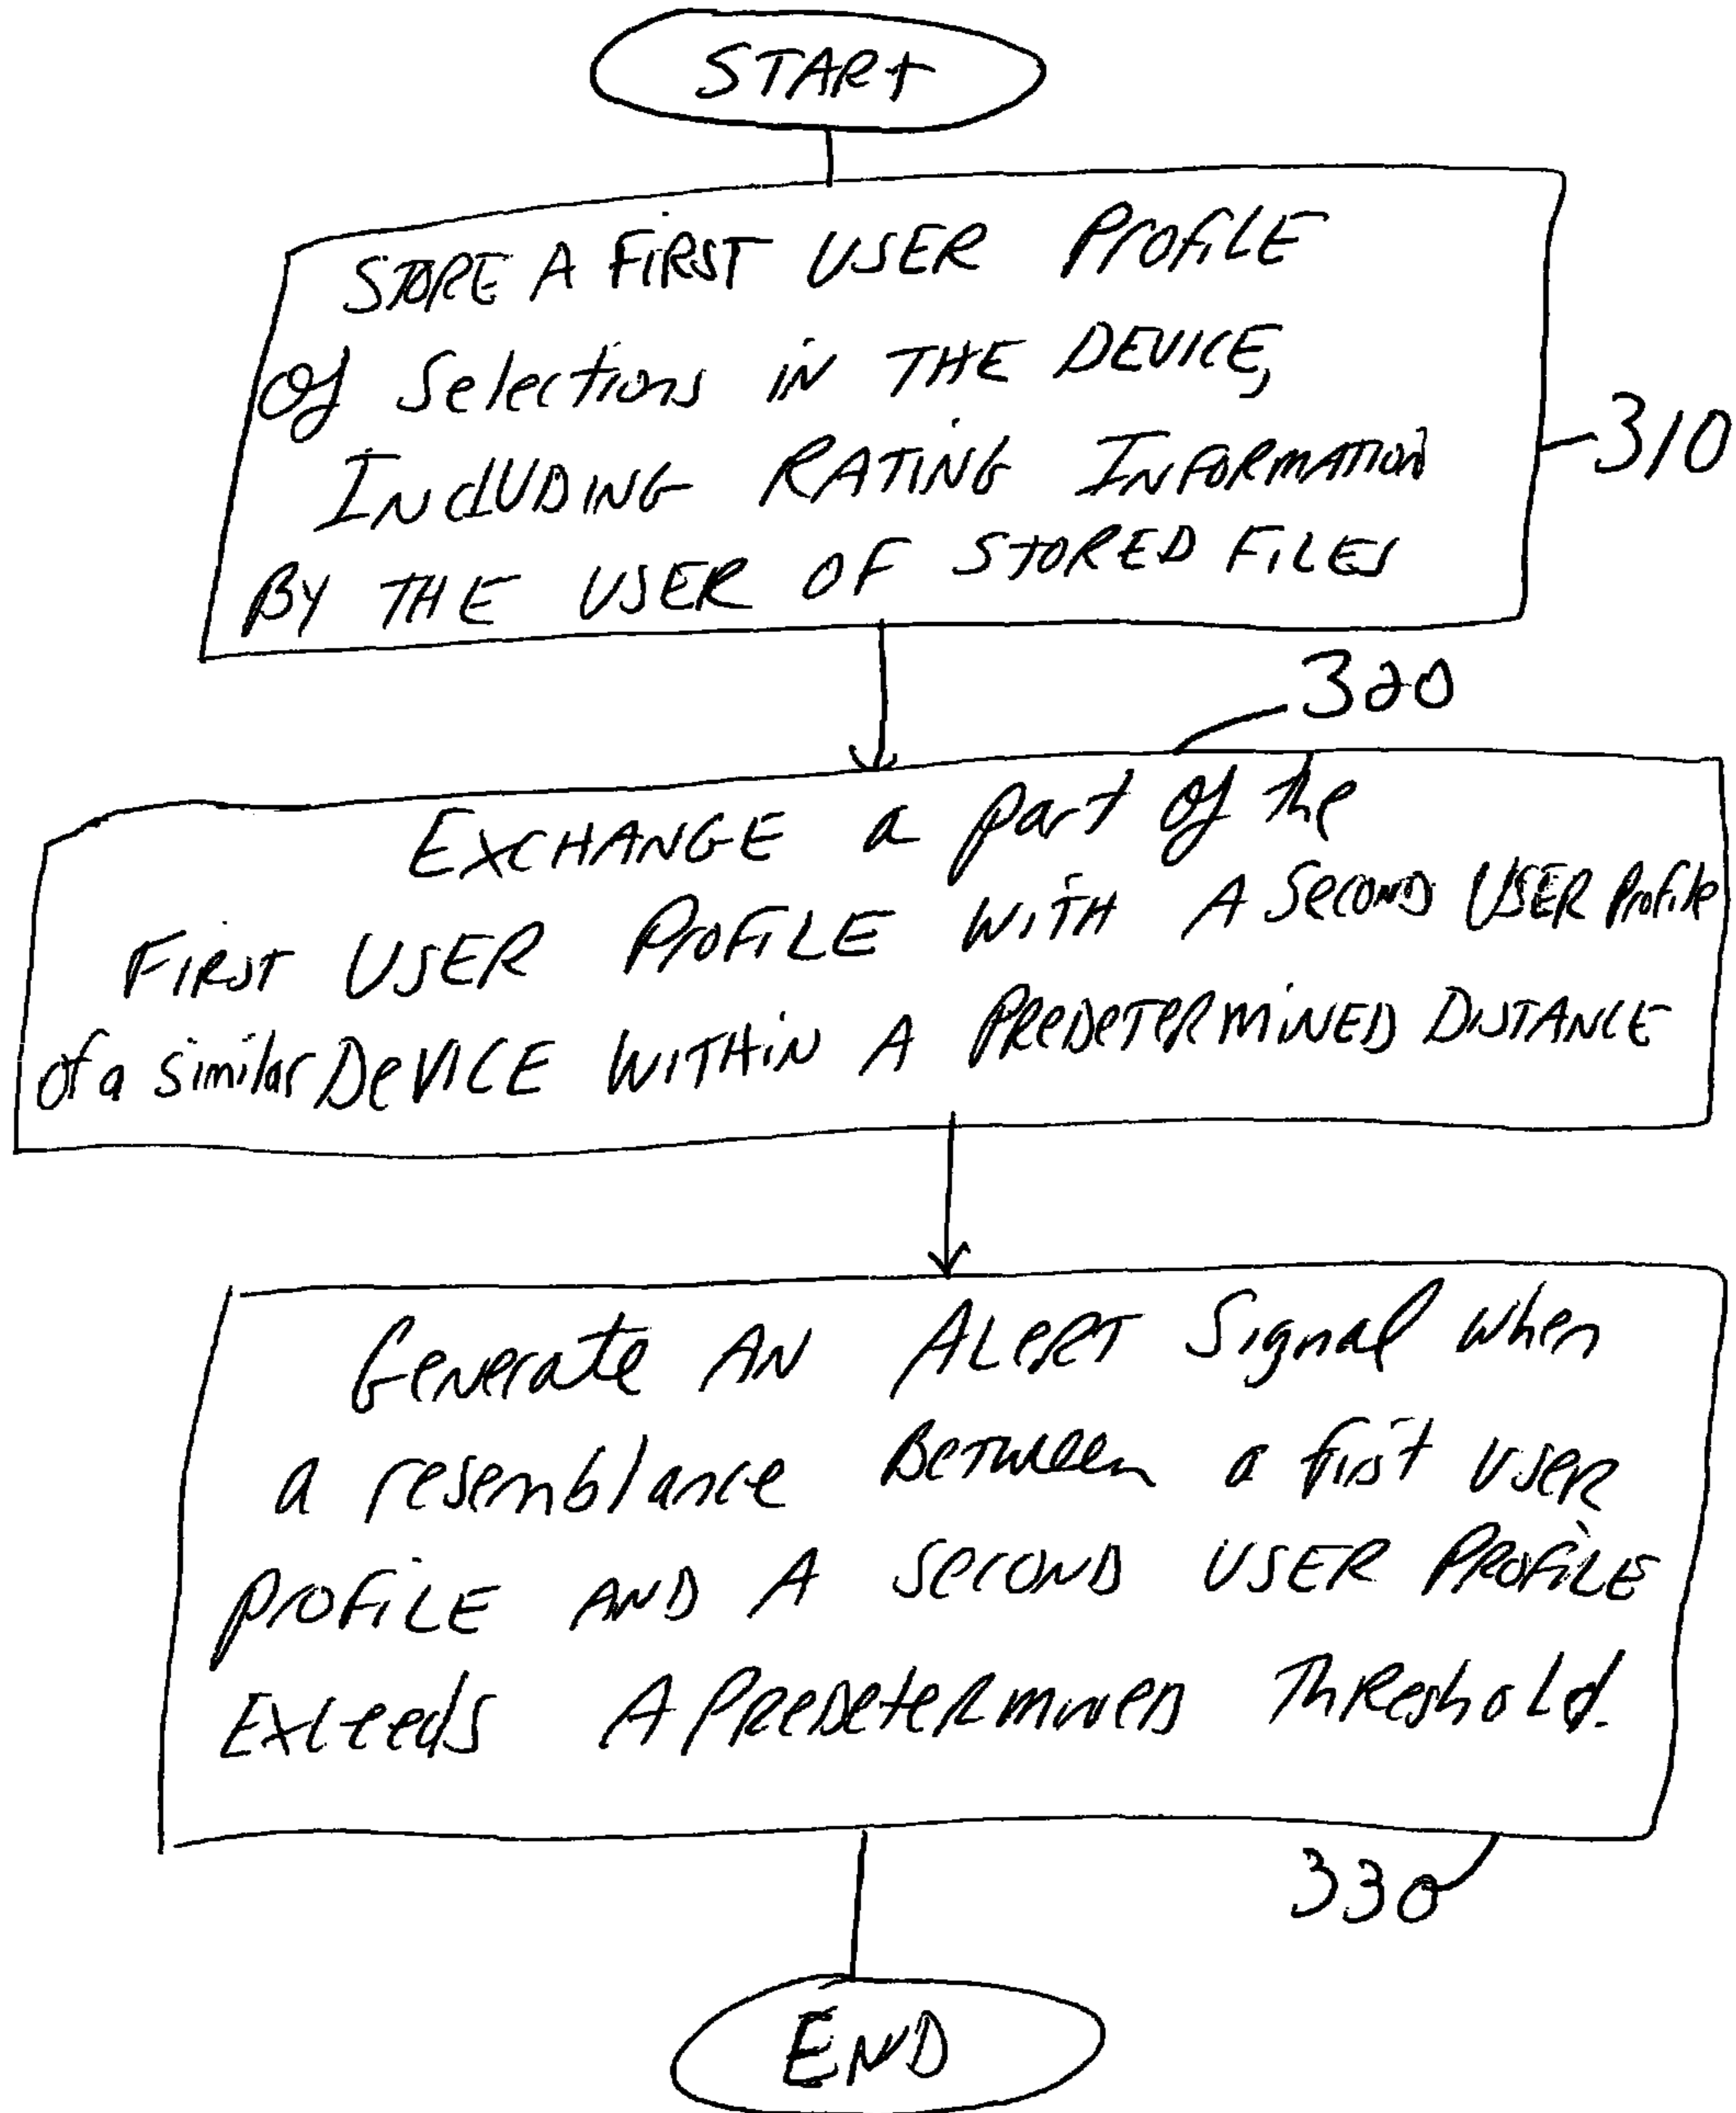 START
STORE A FIRST USER PROFILE
of Selections in THE DEVICE,
INCLUDING RATING INFORMATION
310
BY THE USER OF STORED FILES
320
EXCHANGE a part of the
FIRST USER PROFILE WITH A SECOND USER Profile
of a similar DEVICE WITHIN A PREDETERMINED DISTANCE
Generate AN ALERT Signal when
a resemblance Between a first user
PROFILE AND A SECOND USER PROFILE
Exceeds A PREDetermined Threshold.
330
END